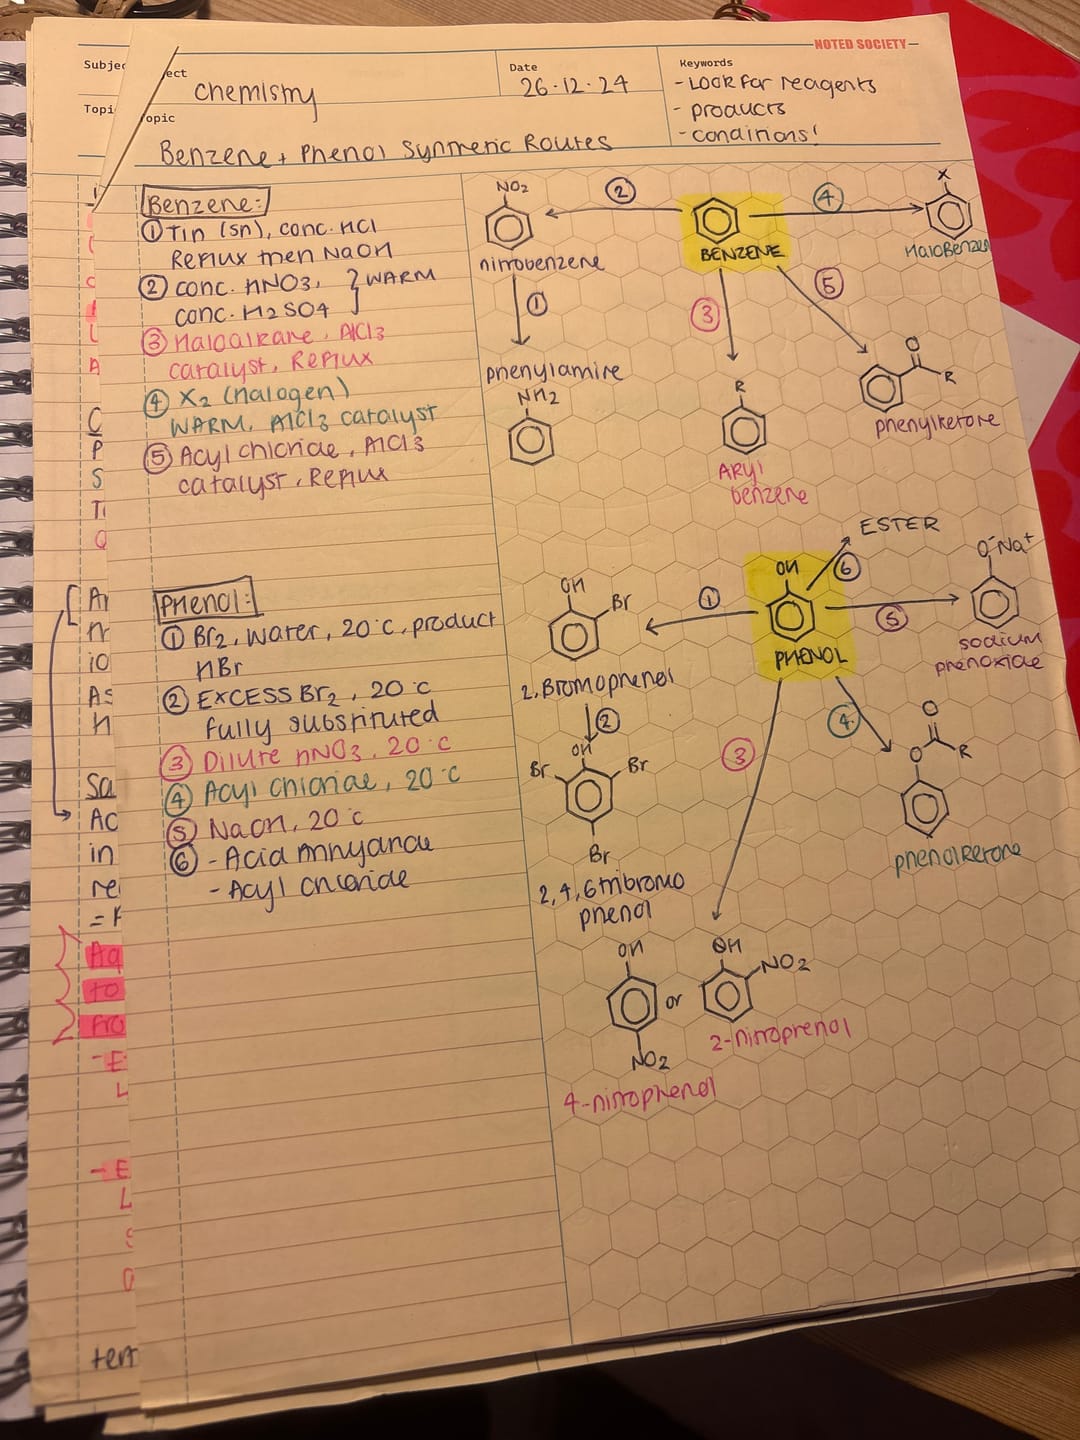 NOTED SOCIETY
Subjec
ect
chemistry
Date
26.12.24
Keywords
- LOOK for reagents
- products
- conditions!
Topi
opic
Benzene + Phenol Synthetic Routes
Benzene:
① Tin (Sn), conc. HCl
Reflux then NaOH
② conc. HNO3, } WARM
conc. H2SO4
③ Haloalkane, AlCl3
catalyst, Reflux
④ X2 (halogen)
WARM, AlCl3 catalyst
⑤ Acyl chloride, AlCl3
catalyst, Reflux
NO2
②
④
X
nitrobenzene
BENZENE
HaloBenzen
①
③
⑤
phenylamine
NH2
R
O
R
phenylketone
Aryl
benzene
Phenol:
① Br2, water, 20°C, product
HBr
② EXCESS Br2, 20°C
fully substituted
③ Dilute HNO3, 20°C
④ Acyl chloride, 20°C
⑤ NaOH, 20°C
⑥ - Acid Anhydride
- Acyl chloride
ESTER
⑥
O-Na+
OH
Br
①
OH
⑤
PHENOL
sodium
phenoxide
2, Bromophenol
②
③
④
OH
Br
Br
Br
O
O
R
phenolketone
2,4,6 tribromo
phenol
OH
or
OH
NO2
NO2
2-nitrophenol
4-nitrophenol